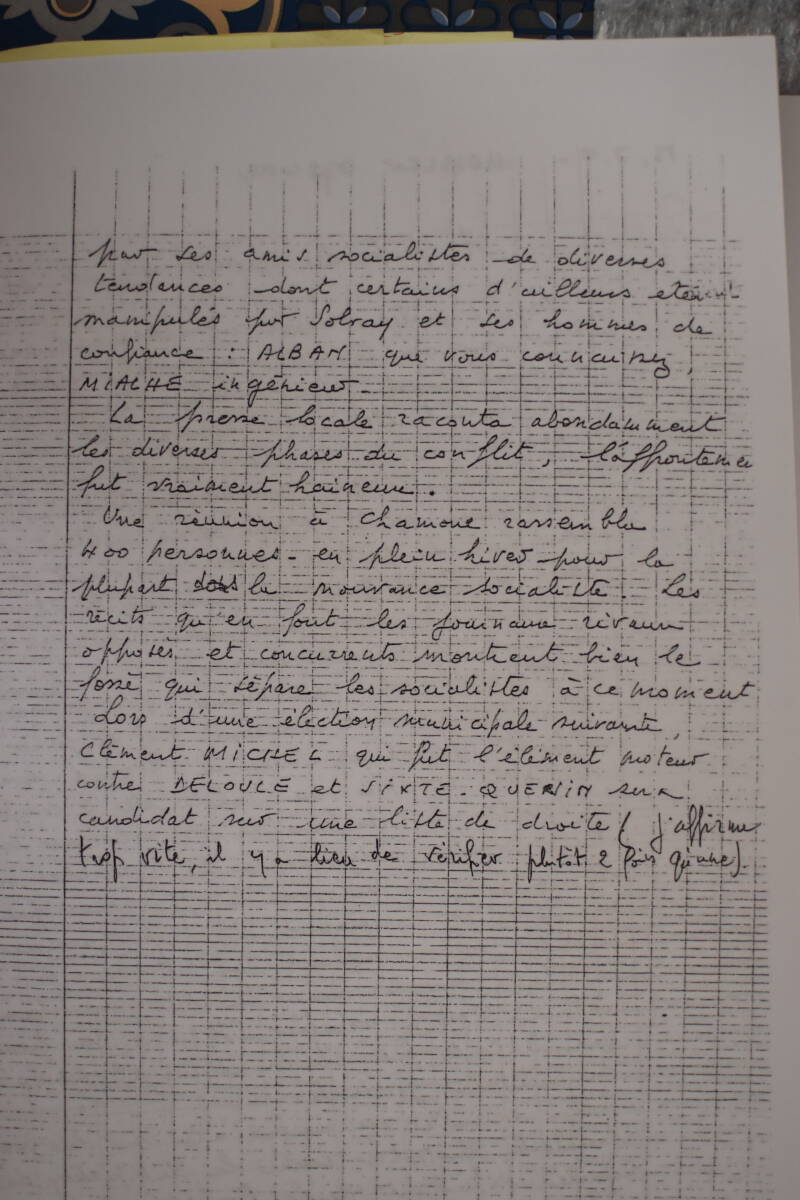 par ses amis socialistes de diverses
tendances dont certains d'ailleurs
manipulés par Solvay et ses hommes de
confiance : ALBAN que vous connaissez,
MIACHE ingénieur.
La presse locale raconta abondamment
les diverses phases du conflit, l'affronteme
fut vraiment haineux.
Une réunion à Chamone rassembla
400 personnes - en plein hiver - pour la
plupart la mouvance socialiste. Les
récits qu'en font les journaux rivaux
opposés et concurrents montrent bien le
fossé qui sépare les socialistes à ce moment
Lors d'une élection municipale suivante,
Clément MICHEL qui fut l'élément moteur
contre DELOULE et SIXTE-QUENIN sera
candidat sur une liste de droite ( j'affirme
trop vite, il y a lieu de vérifier plutôt 2 fois qu'une).